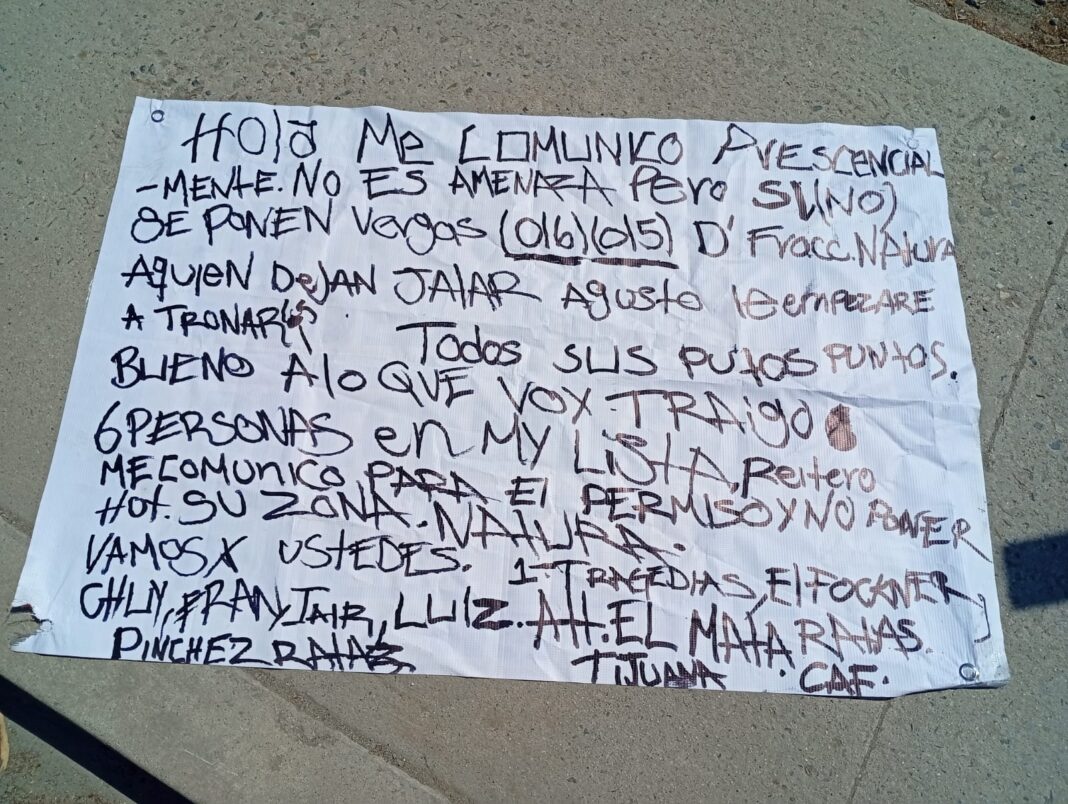 HOlA ME COMUNICO PRESCENCIAL
-MENTE. NO ES AMENAZA PERO SI (NO)
SE PONEN Vergas (016)(015) D' Fracc. NAtura
AQUIEN DeJAN JALAR Agusto le empezare
A TRONAR
Todos SUS PUtOS PUNtOS.
BUENO A lo QUE VOY. TRAigo
6 PERSONAS en MY LiStA, Reitero
ME COMUNICO PARA El PERMISO Y NO PONER
HOt. SU ZONA. NATURA.
VAMOS X UStEDES. 1- TRAGEDIAS, El FOCKNER,
CHUY, FRAN, JAIR, LUIZ. Att. EL MAtA RAtAS.
PINCHEZ RAtAS
TIJUANA . CAF.